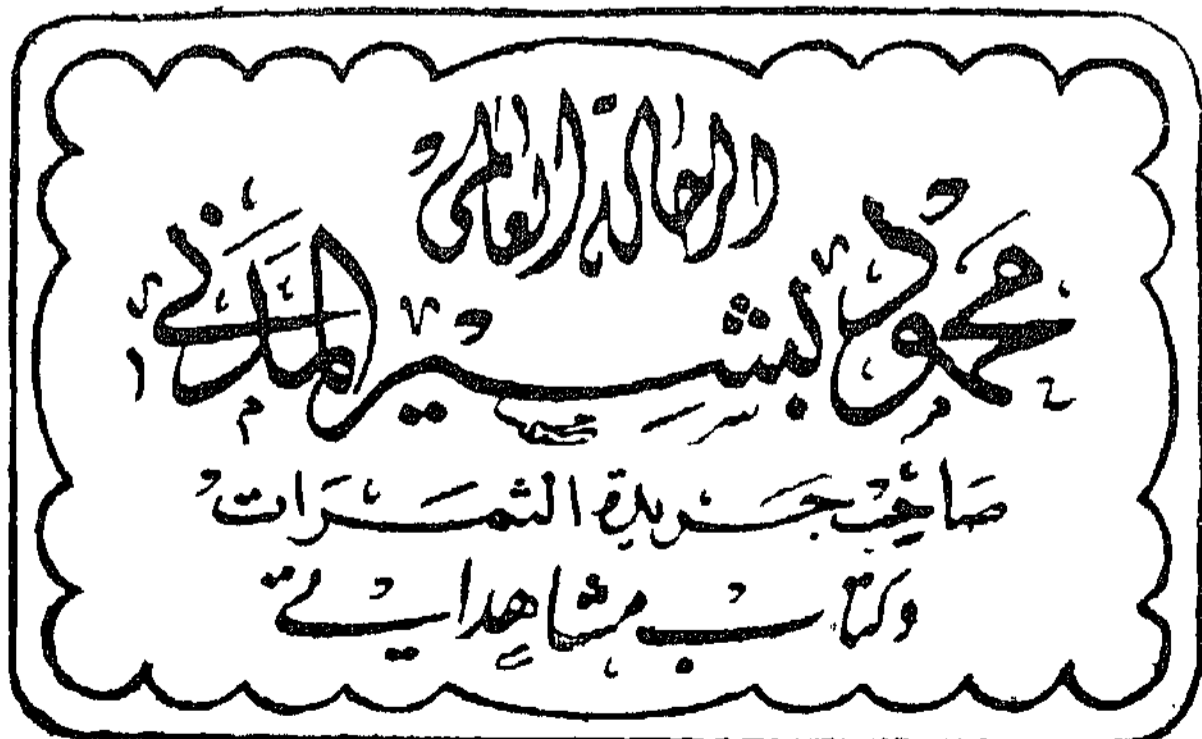 الرحالة العالمى
محمود بشير المدني
صاحب جريدة الثمرات
وكتاب مشاهداتي